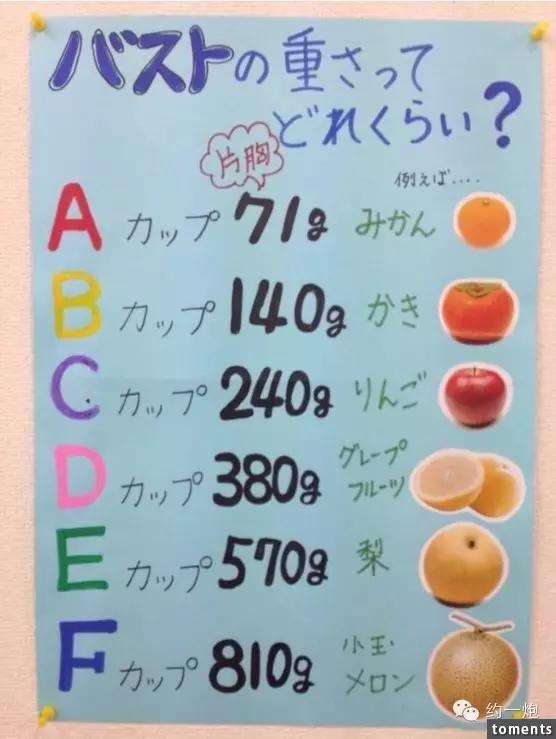 バストの重さって
どれくらい?
片胸
例えば....
A カップ 71g みかん
B カップ 140g かき
C カップ 240g りんご
D カップ 380g グレープ
フルーツ
E カップ 570g 梨
F カップ 810g 小玉
メロン
约一炮
toments